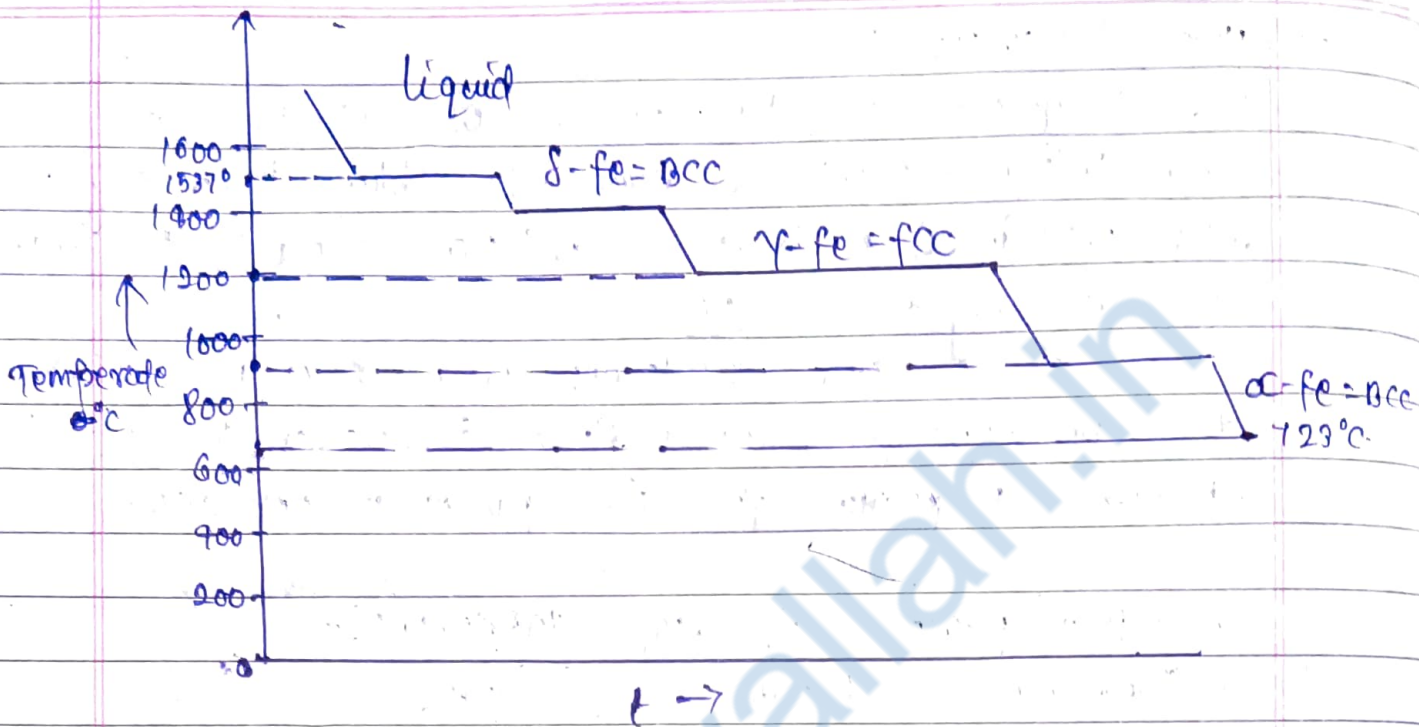 liquid
1600
1537°
δ-fe=BCC
1400
γ-fe =fCC
1200
1000
Temperade
°C
800
α-fe=BCC
723°C.
600
400
200
0
t →
wallah.in